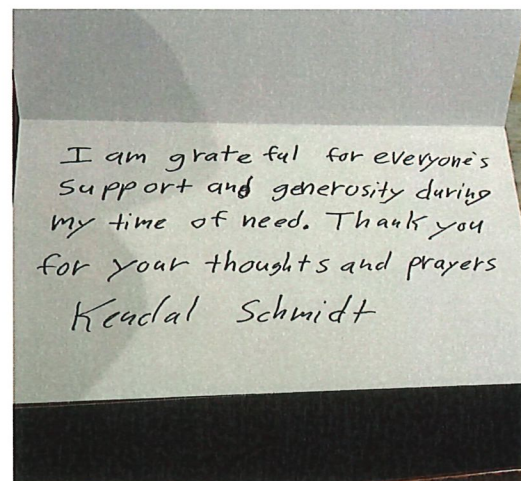 I am grateful for everyone's
support and generosity during
my time of need. Thank you
for your thoughts and prayers
Kendal Schmidt